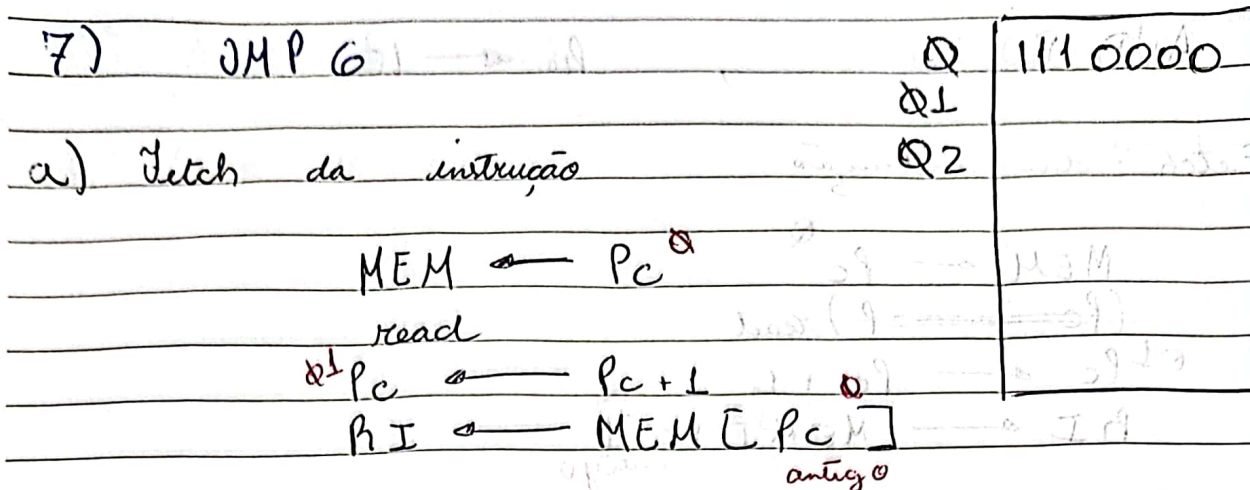 7) JMP 6 0 1110000
01
a) Fetch da instrução 02
MEM ← Pc 0
read
01 Pc ← Pc + 1 0
RI ← MEM [ Pc ]
antigo